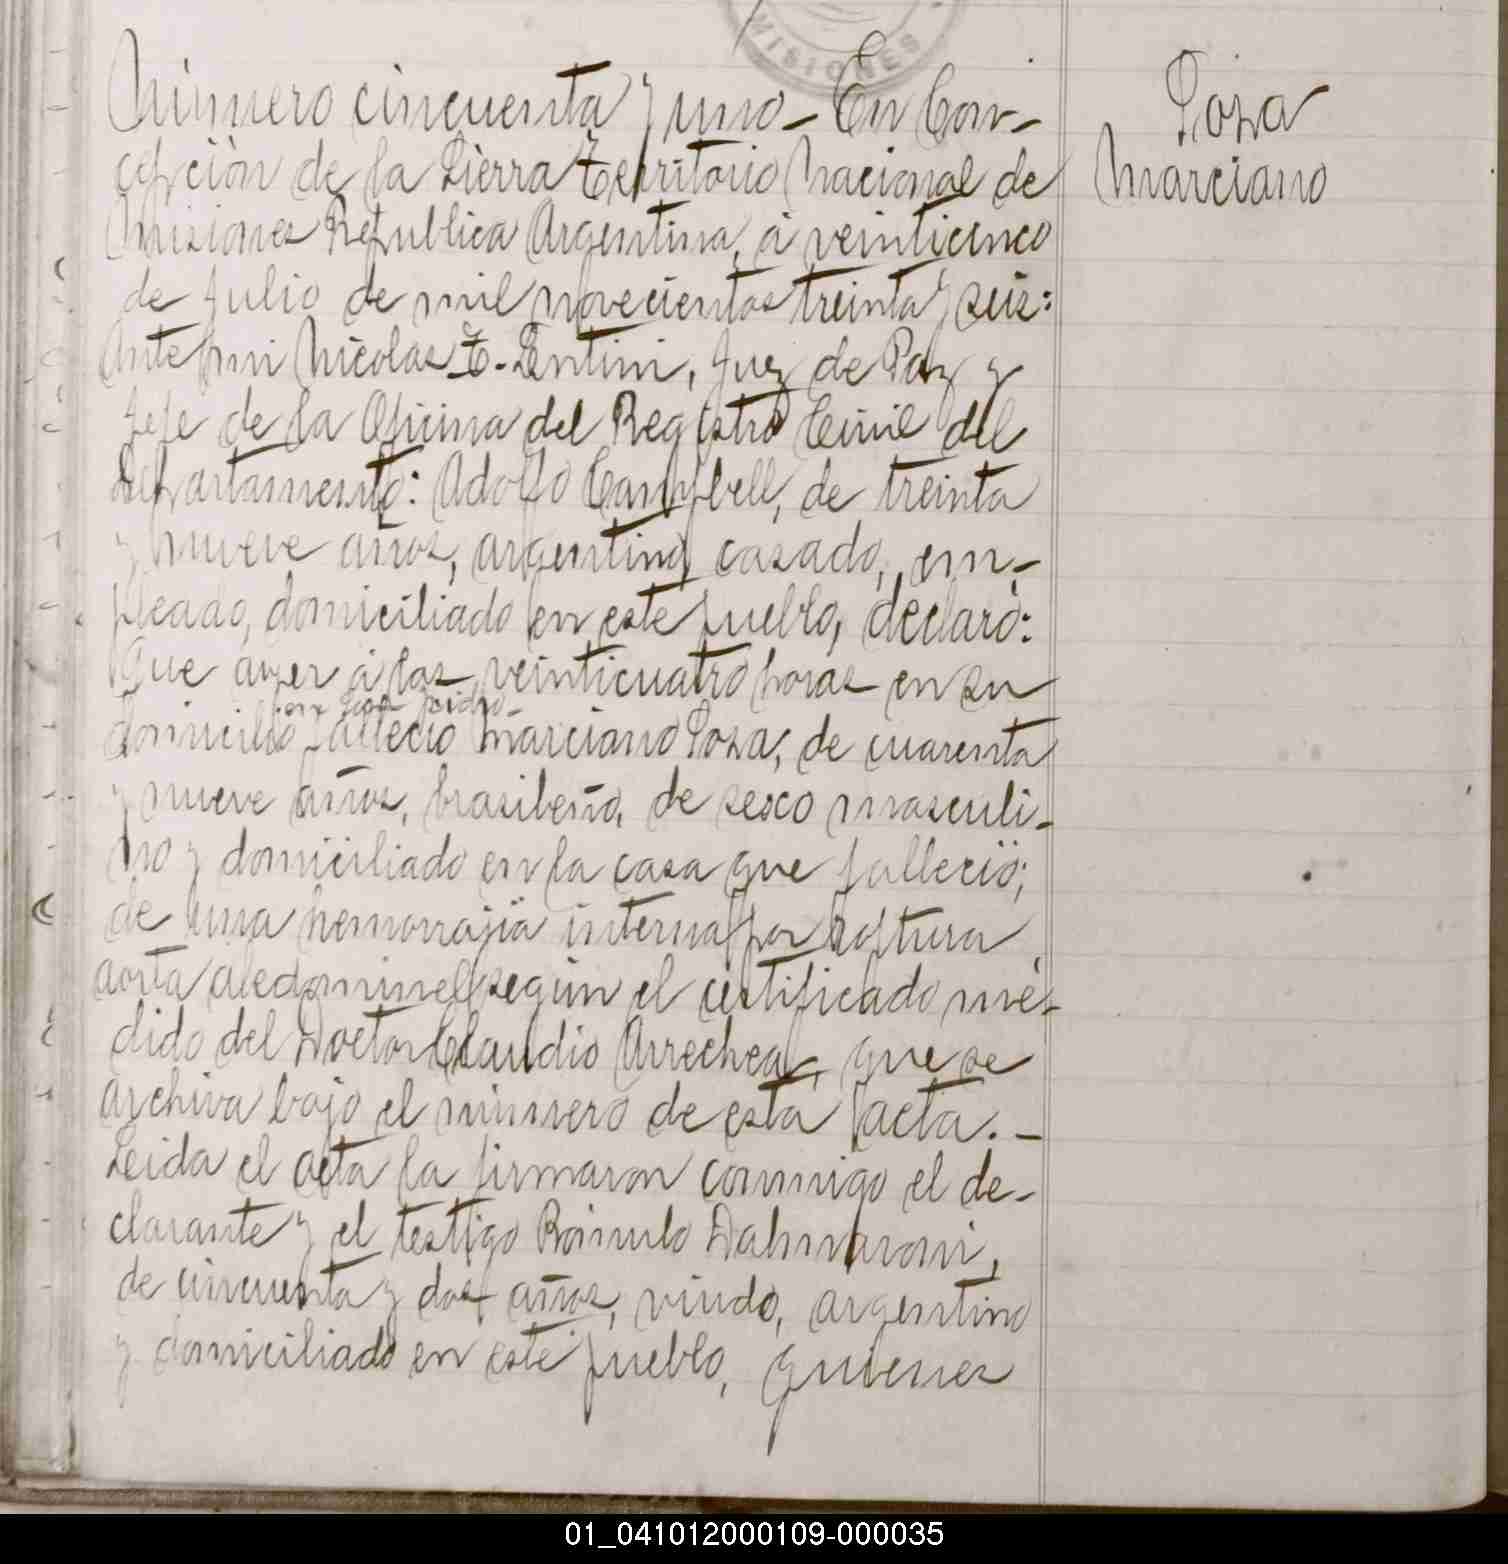 MISIONES
Número cincuenta y uno_ En Con-
cepción de la Sierra Territorio Nacional de
Misiones Republica Argentina, á veinticinco
de Julio de mil novecientos treinta y seis:
Ante mi Nicolas E. Lentini, Juez de Paz y
Jefe de la Oficina del Registro Civil del
Departamento: Adolfo Campbell, de treinta
y nueve años, argentino, casado, em-
pleado, domiciliado en este pueblo, declaró:
Que ayer á las veinticuatro horas en su
en San Isidro-
domicilio falleció Marciano Sosa, de cuarenta
y nueve años, brasileño, de sexo masculi-
no y domiciliado en la casa que falleció;
de una hemorrajia interna por roptura
aorta abdominel según el certificado mé-
dido del Doctor Claudio Arrechea, que se
archiva bajo el número de esta acta. _
Leida el acta la firmaron conmigo el de-
clarante y el testigo Rómulo Dahmaroni,
de cincuenta y dos años, viudo, argentino
y domiciliado en este pueblo, quienes
Sosa
Marciano
01_041012000109-000035